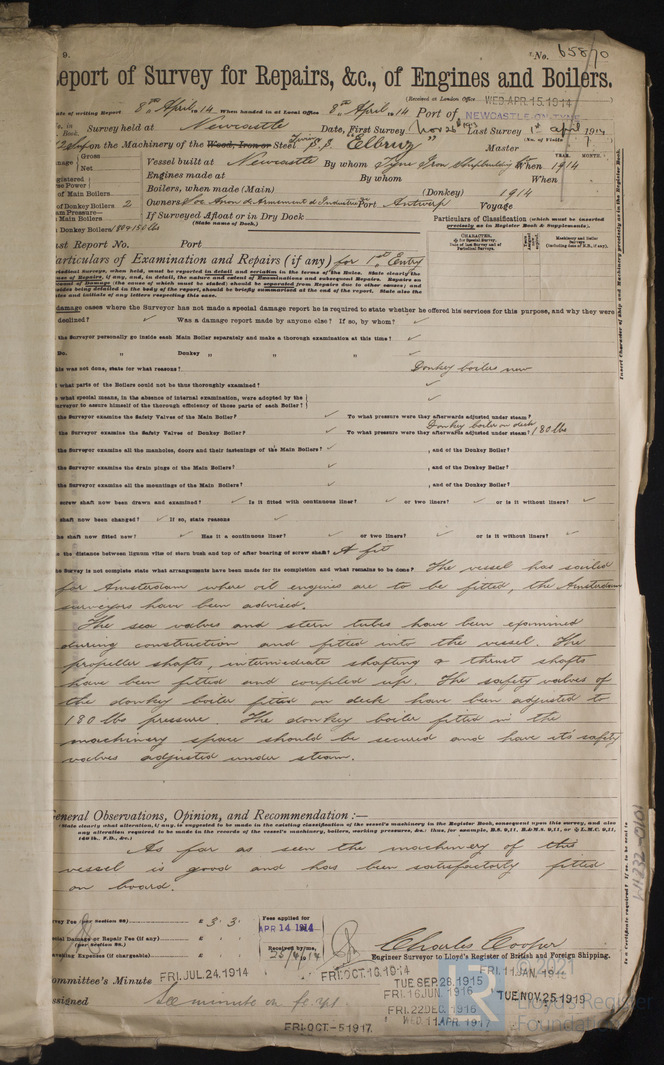 9.
No. 65870
eport of Survey for Repairs, &c., of Engines and Boilers.
(Received at London Office WED. APR. 15. 1914)
ate of writing Report 8th April 1914 When handed in at Local Office 8th April 1914 Port of NEWCASTLE-ON-TYNE
No. in Survey held at Newcastle Date, First Survey Nov 26th 1913 Last Survey 1st April 1914
Book. (No. of Visits 7)
on the Machinery of the Wood, Iron or Steel Twin S.S. "Elbruz" Master
nage Gross Vessel built at Newcastle By whom Tyne Iron Shipbuilding When 1914
Net YEAR. MONTH.
Engines made at By whom When
egistered
se Power Boilers, when made (Main) (Donkey) 1914
of Main Boilers
of Donkey Boilers 2 Owners Soc Anon d'Armement d'Industrie Port Antwerp Voyage
am Pressure—
Main Boilers If Surveyed Afloat or in Dry Dock
(State name of Dock.)
Donkey Boilers 180 & 150 lbs
Particulars of Classification (which must be inserted
precisely as in Register Book & Supplements).
ast Report No. Port
articulars of Examination and Repairs (if any) for 1st Entry
damage cases where the Surveyor has not made a special damage report he is required to state whether he offered his services for this purpose, and why they were
declined? ✓ Was a damage report made by anyone else? If so, by whom? ✓
the Surveyor personally go inside each Main Boiler separately and make a thorough examination at this time? ✓
Do. „ Donkey „ „ „ ✓
his was not done, state for what reasons? Donkey boilers new
what parts of the Boilers could not be thus thoroughly examined? ✓
what special means, in the absence of internal examination, were adopted by the
urveyor to assure himself of the thorough efficiency of those parts of each Boiler? ✓
the Surveyor examine the Safety Valves of the Main Boiler? ✓ To what pressure were they afterwards adjusted under steam?
the Surveyor examine the Safety Valves of Donkey Boiler? ✓ To what pressure were they afterwards adjusted under steam? Donkey boiler on deck 180 lbs
the Surveyor examine all the manholes, doors and their fastenings of the Main Boilers? ✓ , and of the Donkey Boiler?
the Surveyor examine the drain plugs of the Main Boilers? ✓ , and of the Donkey Boiler?
the Surveyor examine all the mountings of the Main Boilers? ✓ , and of the Donkey Boiler?
screw shaft now been drawn and examined? ✓ Is it fitted with continuous liner? ✓ or two liners? ✓ or is it without liners? ✓
shaft now been changed? ✓ If so, state reasons ✓
he shaft now fitted new? ✓ Has it a continuous liner? ✓ or two liners? ✓ or is it without liners? ✓
the distance between lignum vitæ of stern bush and top of after bearing of screw shaft? A fit
he Survey is not complete state what arrangements have been made for its completion and what remains to be done? The vessel has sailed
for Amsterdam where oil engines are to be fitted, the Amsterdam
surveyors have been advised.
The sea valves and stern tubes have been examined
during construction and fitted into the vessel. The
propeller shafts, intermediate shafting & thrust shafts
have been fitted and coupled up. The safety valves of
the donkey boiler fitted on deck have been adjusted to
180 lbs pressure. The donkey boiler fitted in the
machinery space should be secured and have its safety
valves adjusted under steam.
General Observations, Opinion, and Recommendation:—
(State clearly what alteration, if any, is suggested to be made in the existing classification of the vessel's machinery in the Register Book, consequent upon this survey, and also
any alteration required to be made in the records of the vessel's machinery, boilers, working pressures, &c.: thus, for example, B.S. 9,11, B.&M.S. 9,11, or L.M.C. 9,11,
140 lb., F.D., &c.)
As far as seen the machinery of this
vessel is good and has been satisfactorily fitted
on board.
vey Fee (per Section 29) £ 3 : 3 : Fees applied for
APR 14 1914
ecial Damage or Repair Fee (if any) £
(per Section 28.) Received by me,
avelling Expenses (if chargeable) £
Charles Cooper
Engineer Surveyor to Lloyd's Register of British and Foreign Shipping.
ommittee's Minute FRI. JUL. 24. 1914 FRI. OCT. 16. 1914 TUE. SEP. 28. 1915 FRI. 11 JAN. 1916
FRI. 16 JUN. 1916 TUE. NOV. 25. 1919
ssigned See minute on
FRI. 22 DEC. 1916
WED. 11 APR. 1917
FRI. OCT. -5 1917.
© 2021
Lloyd's Register
Foundation
W1232-0101
Insert Character of Ship and Machinery precisely as in the Register Book.